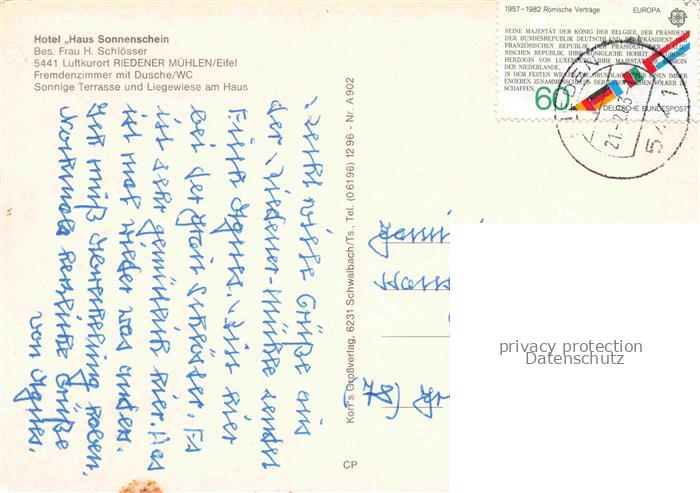 Hotel „Haus Sonnenschein
Bes. Frau H. Schlösser
5441 Luftkurort RIEDENER MÜHLEN/Eifel
Fremdenzimmer mit Dusche/WC
Sonnige Terrasse und Liegewiese am Haus
1957-1982 Römische Verträge EUROPA
SEINE MAJESTÄT DER KÖNIG DER BELGIER, DER PRÄSIDENT
DER BUNDESREPUBLIK DEUTSCHLAND, DER PRÄSIDENT DER
FRANZÖSISCHEN REPUBLIK, DER PRÄSIDENT DER
REPUBLIK, IHRE KÖNIGLICHE HOHEIT DIE
HERZOGIN VON LUXEMBURG, IHRE MAJESTÄT DIE KÖNIGIN
DER NIEDERLANDE,
IN DEM FESTEN WILLEN, DIE GRUNDLAGEN FÜR EINEN IMMER
ENGEREN ZUSAMMENSCHLUSS DER EUROPÄISCHEN VÖLKER ZU
SCHAFFEN,
60
DEUTSCHE BUNDESPOST
5441
Grüße aus
der Riedener-Mühle sendet
Agnes. hier
bei der Frau Schlösser. Es
ist sehr gemütlich hier. Das
ist mal wieder was anders.
muß haben.
Nochmals herzliche Grüße
von Agnes.
Korr's Großverlag, 6231 Schwalbach/Ts., Tel. (06196) 1296 - Nr. A 902
CP
privacy protection
Datenschutz